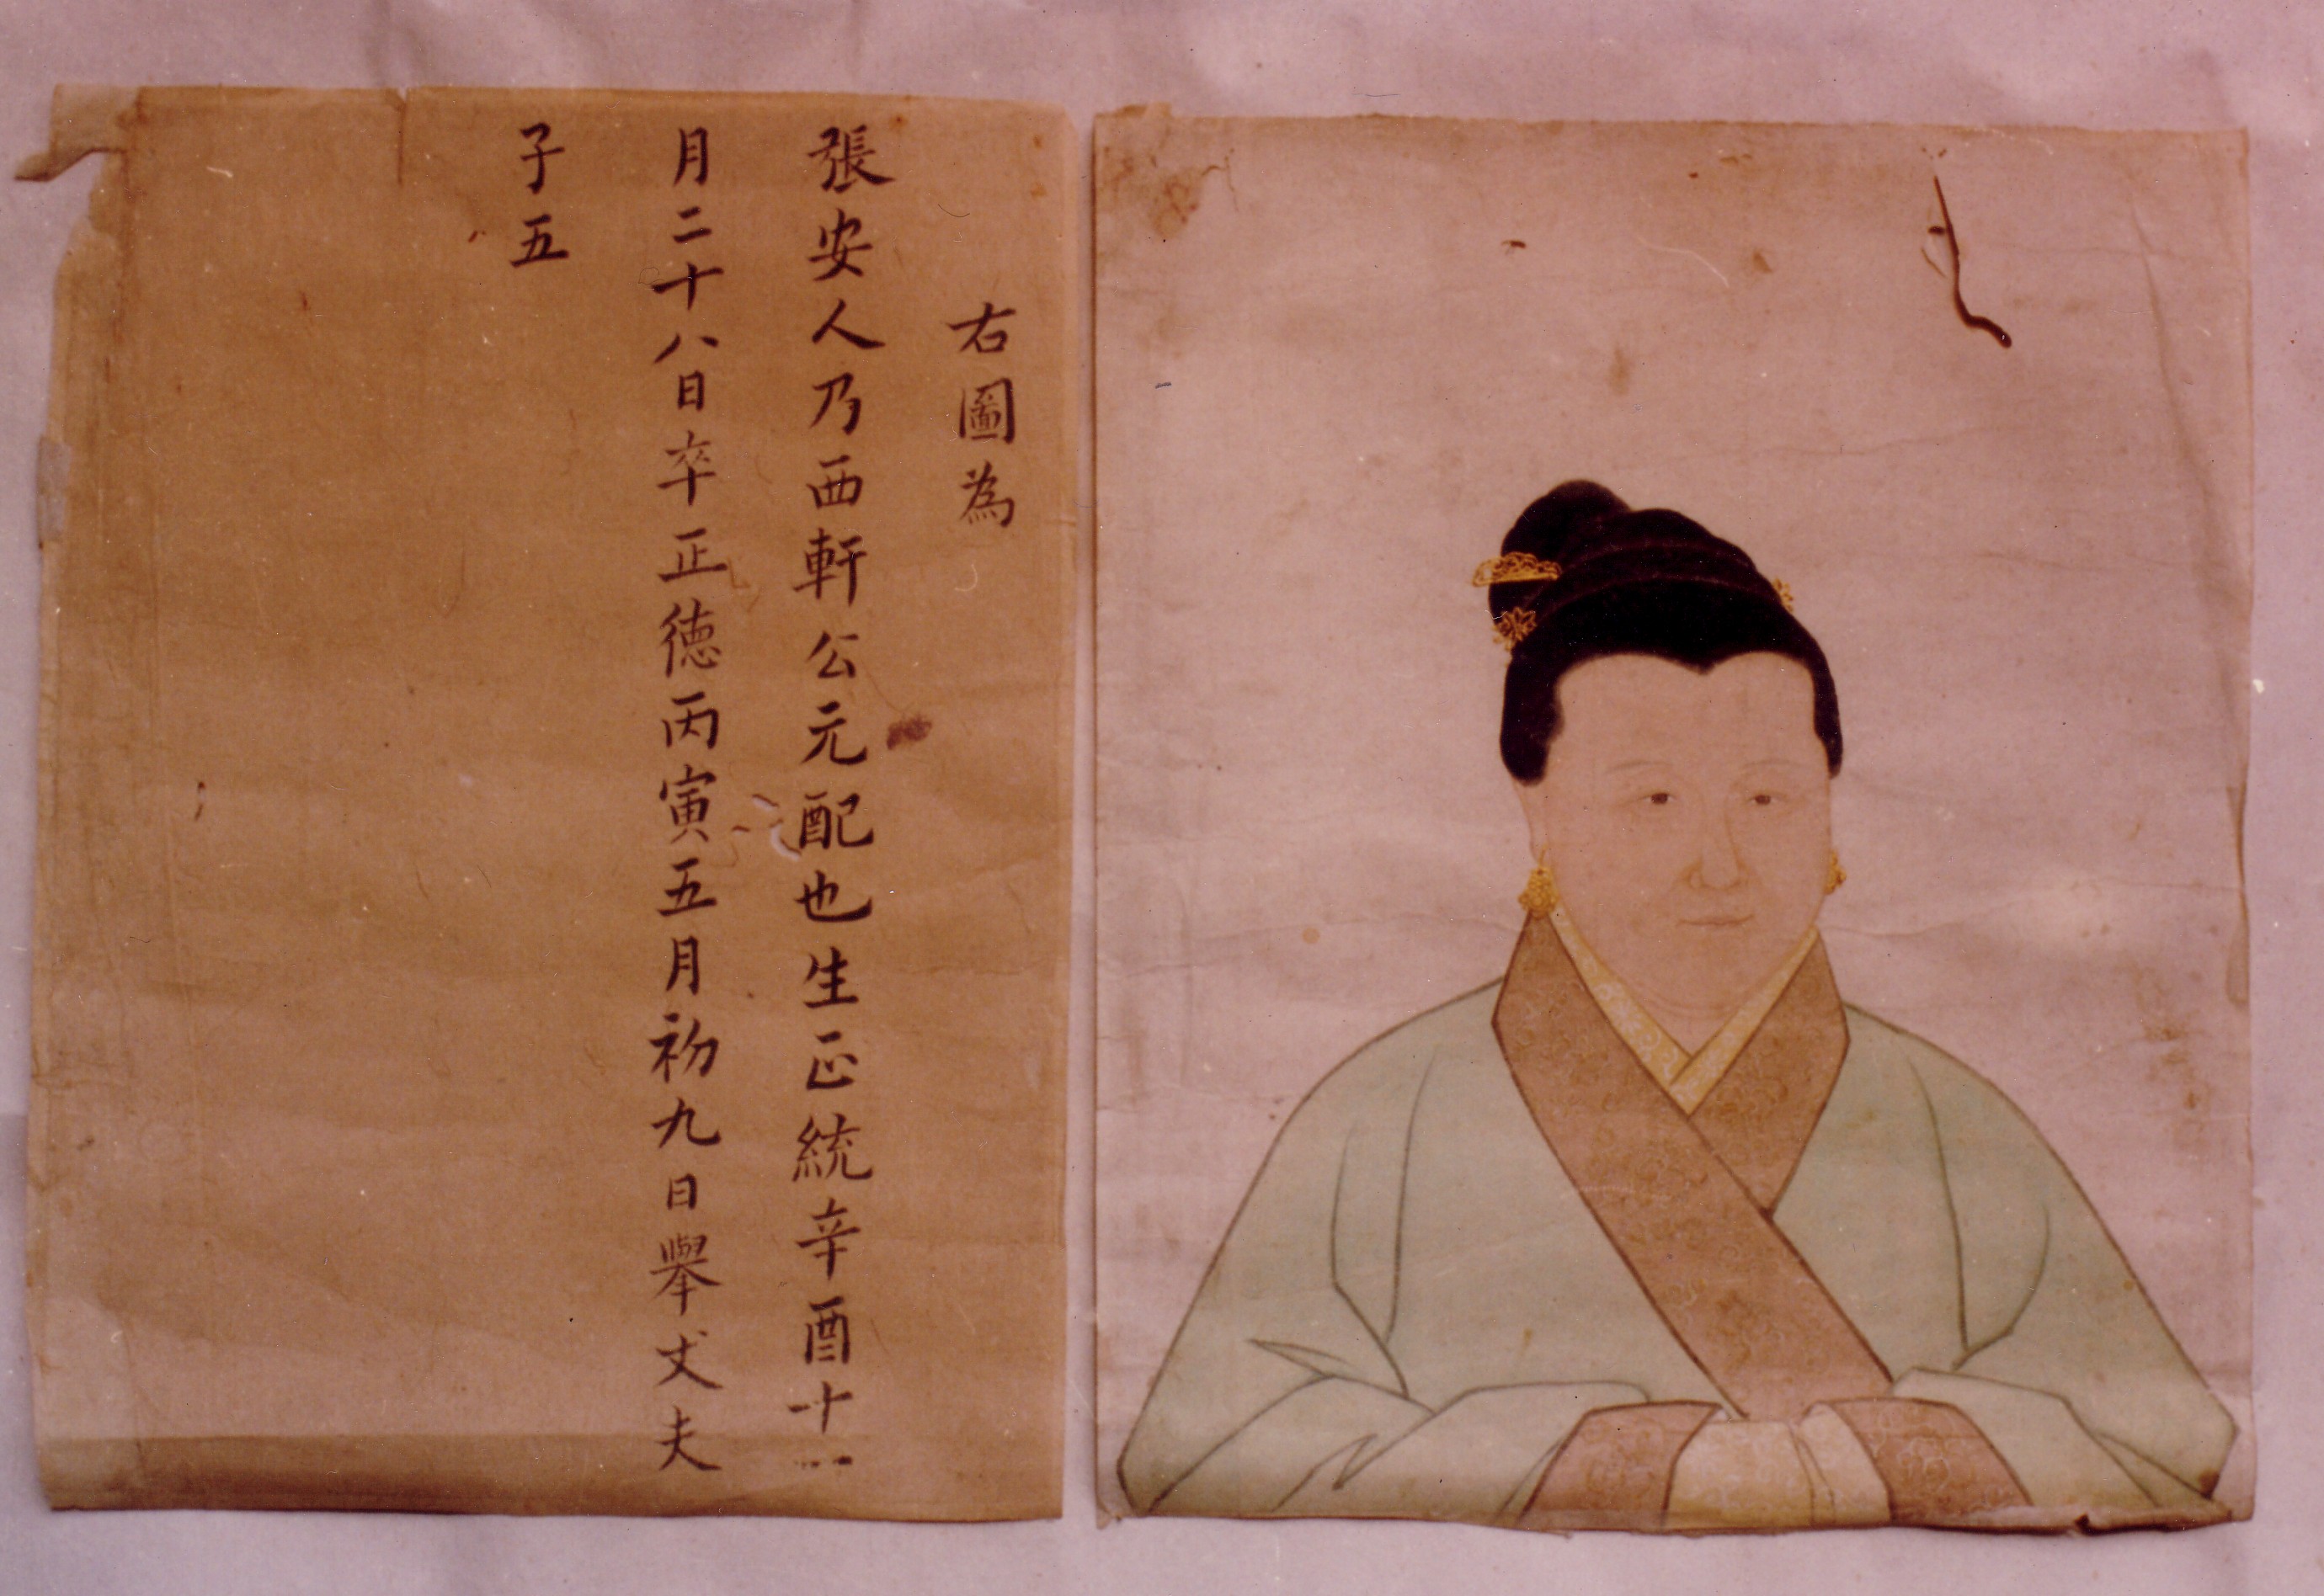 右圖為
張安人乃西軒公元配也生正統辛酉十一
月二十八日卒正德丙寅五月初九日舉丈夫
子五